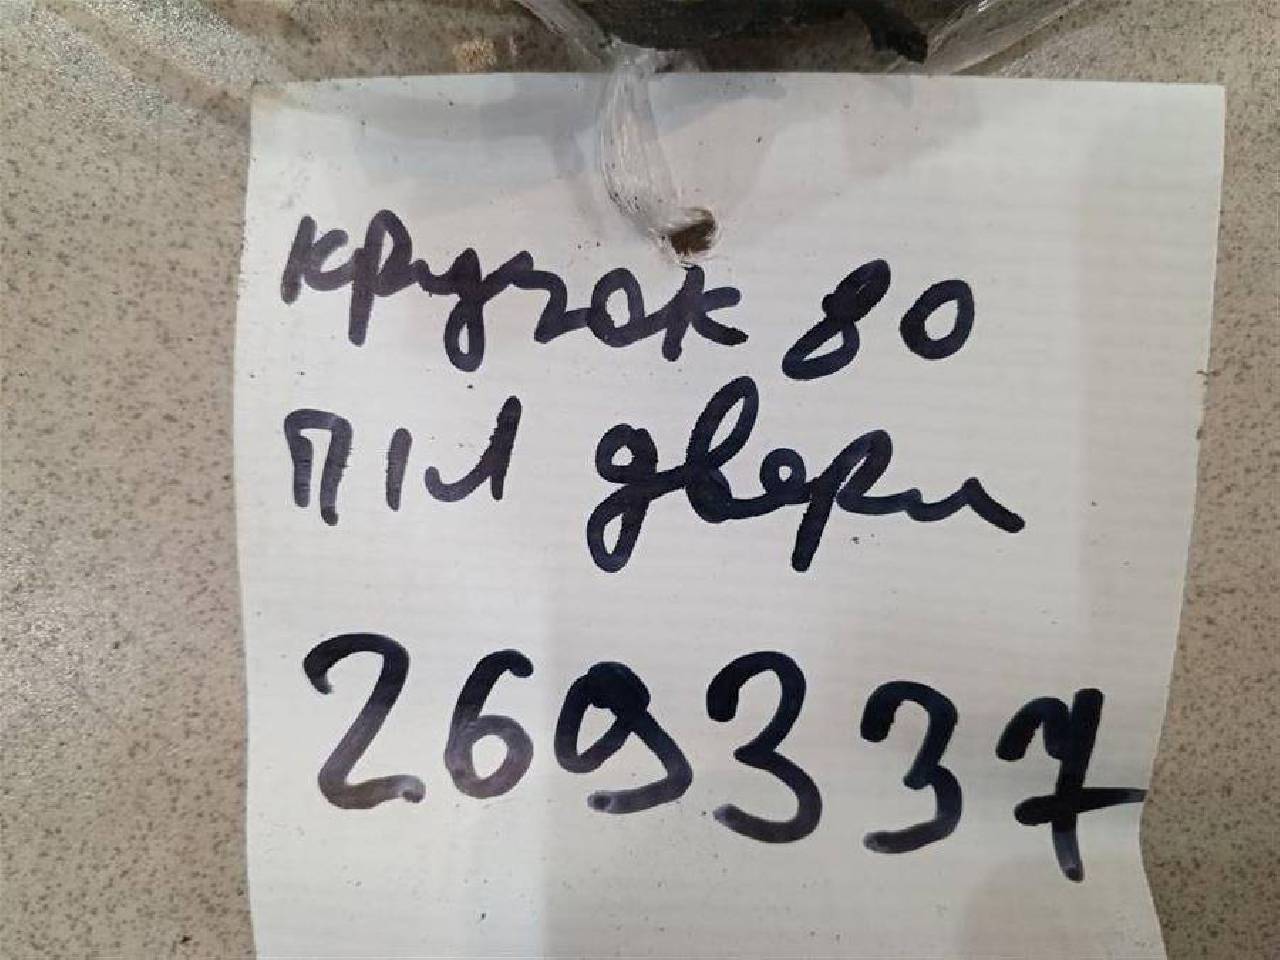 кручок 80
П1Л двери
269337